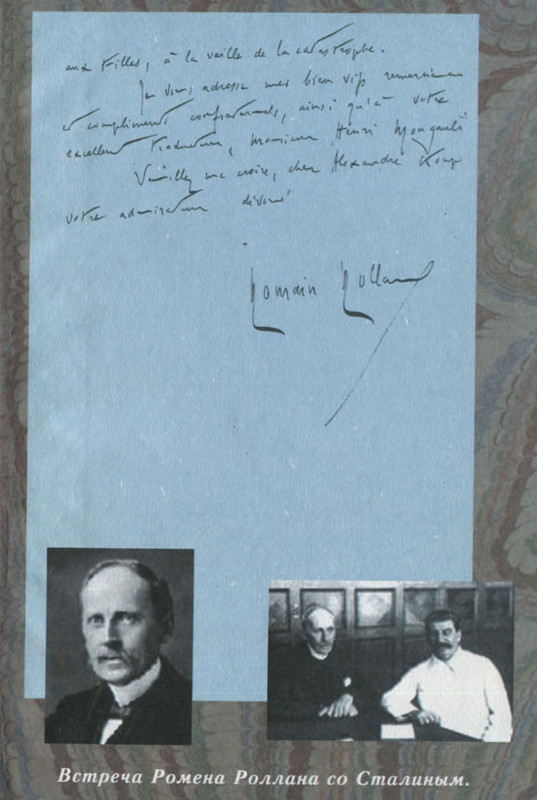 aux Filles, à la vaille de la catastrophe.
Je vous adresse mes bien vifs
et compliments confraternels, ainsi qu'à votre
excellent traducteur, Monsieur Henri Mongault
Veuillez me croire, cher Alexandre
votre admirateur dévoué
Romain Rolland
Встреча Ромена Роллана со Сталиным.